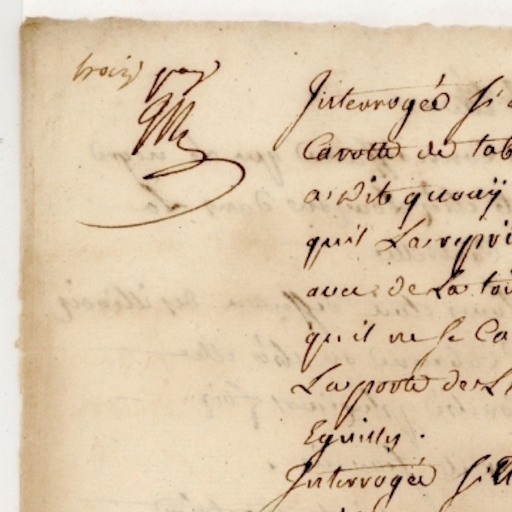 troize pag
Interrogée si
Carotte de tab
a dite quouÿ
quil La repri
avec de La toi
quil ne se Ca
La porte de L
Eguilly.
Interrogée sil